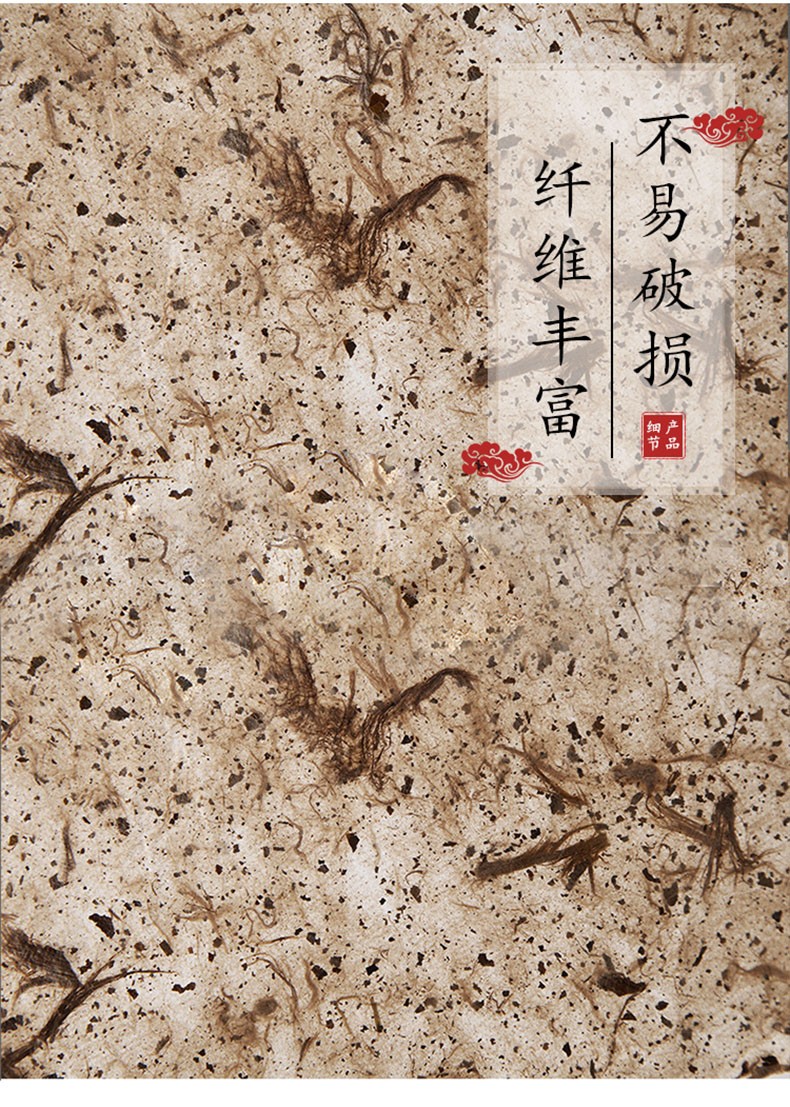 不易破损
纤维丰富
产品
细节